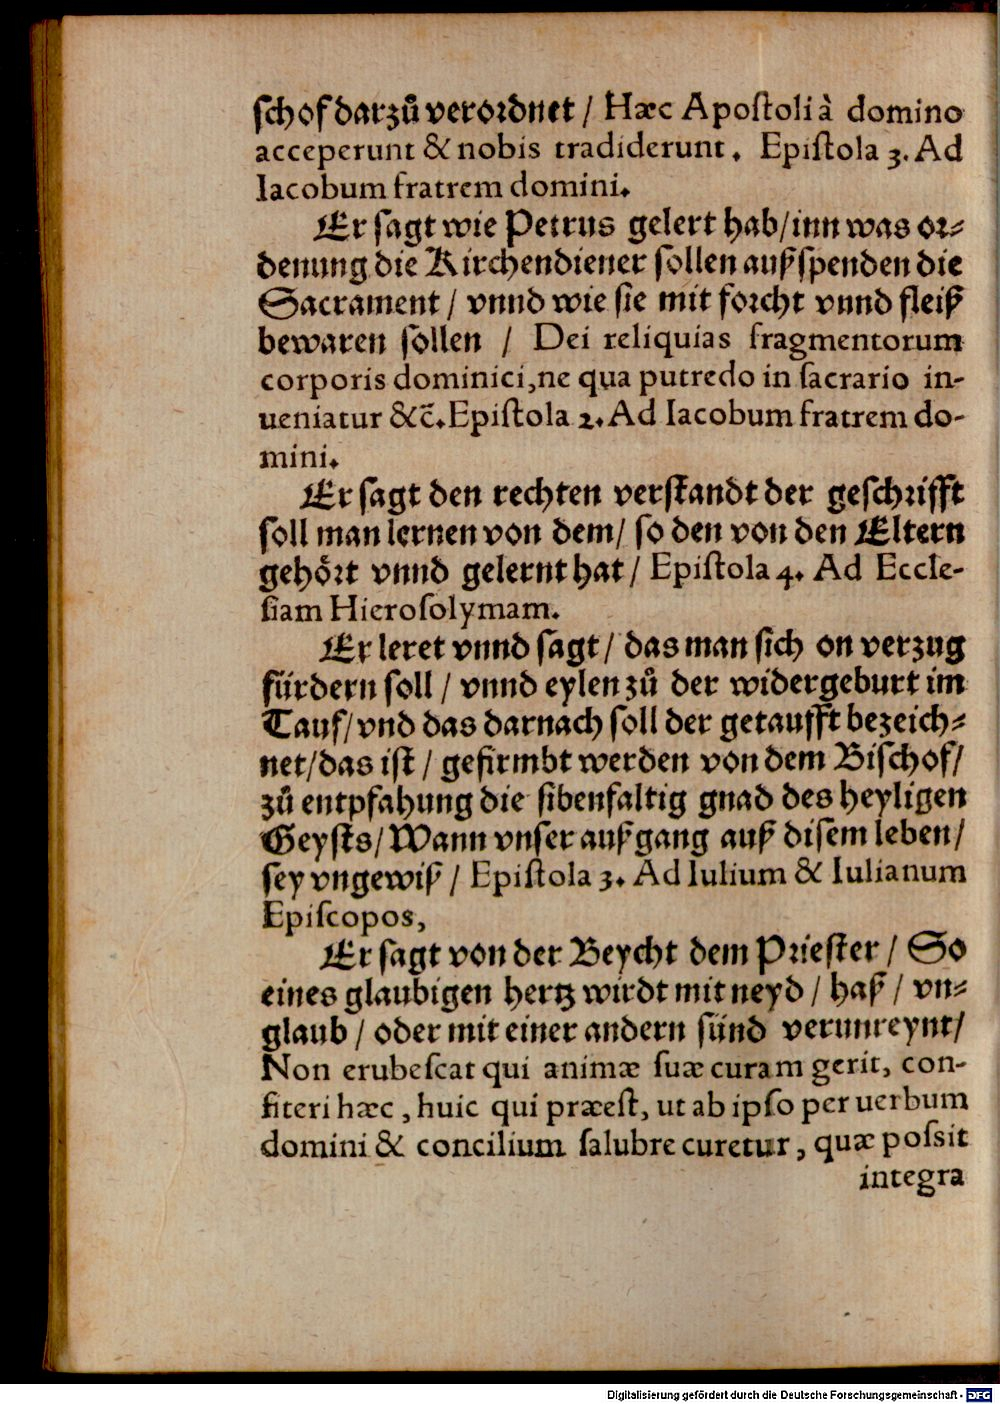 ſchof darzů verordnet / Hæc Apoſtoli à domino
acceperunt & nobis tradiderunt. Epiſtola 3. Ad
Iacobum fratrem domini.
Er ſagt wie Petrus gelert hab/inn was or⸗
denung die Kirchendiener ſollen außſpenden die
Sacrament / vnnd wie ſie mit forcht vnnd fleiß
bewaren ſollen / Dei reliquias fragmentorum
corporis dominici,ne qua putredo in ſacrario in-
ueniatur &c̃.Epiſtola 2.Ad Iacobum fratrem do-
mini.
Er ſagt den rechten verſtandt der geſchrifft
ſoll man lernen von dem/ ſo den von den Eltern
gehoͤrt vnnd gelernt hat / Epiſtola 4. Ad Eccle-
ſiam Hieroſolymam.
Er leret vnnd ſagt / das man ſich on verzug
fürdern ſoll / vnnd eylen zů der widergeburt im
Tauf/vnd das darnach ſoll der getaufft bezeich⸗
net/das iſt / gefirmbt werden von dem Biſchof/
zů entpfahung die ſibenfaltig gnad des heyligen
Geyſts/Wann vnſer außgang auß diſem leben/
ſey vngewiß / Epiſtola 3. Ad Iulium & Iulianum
Epiſcopos,
Er ſagt von der Beycht dem Prieſter / So
eines glaubigen hertz wirdt mit neyd / haß / vn⸗
glaub / oder mit einer andern ſünd verunreynt/
Non erubeſcat qui animæ ſuæ curam gerit, con-
fiteri hæc, huic qui præeſt, ut ab ipſo per uerbum
domini & concilium ſalubre curetur, quæ poſsit
integra
Digitalisierung gefördert durch die Deutsche Forschungsgemeinschaft - DFG